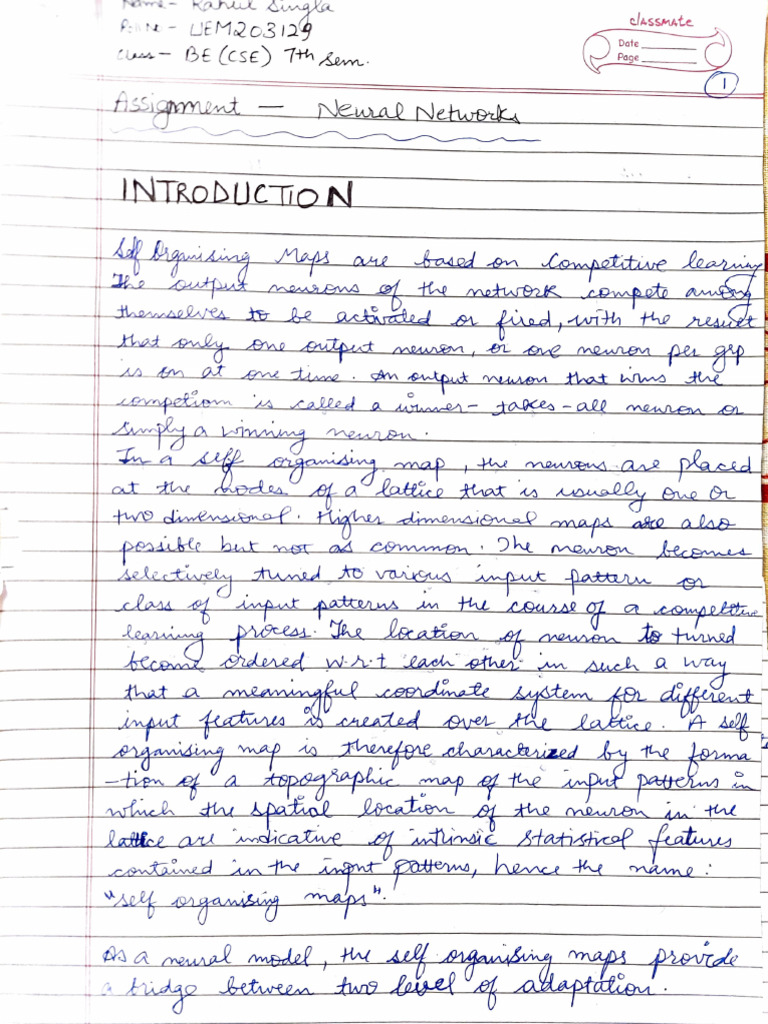 Name - Rahul Singla
Roll No - UEM203129
Class - BE (CSE) 7th Sem.
classmate
Date
Page
1
Assignment — Neural Networks
INTRODUCTION
Self Organising Maps are based on competitive learning
The output neurons of the network compete among
themselves to be activated or fired, with the result
that only one output neuron, or one neuron per grp
is on at one time. An output neuron that wins the
competiom is called a winner-takes-all neuron or
simply a winning neuron.
In a self organising map, the neurons are placed
at the nodes of a lattice that is usually one or
two dimensional. Higher dimensional maps are also
possible but not as common. The neuron becomes
selectively tuned to various input pattern or
class of input patterns in the course of a competitive
learning process. The location of neuron to turned
become ordered w.r.t each other in such a way
that a meaningful coordinate system for different
input features is created over the lattice. A self
organising map is therefore characterized by the forma
-tion of a topographic map of the input patterns in
which the spatial location of the neuron in the
lattice are indicative of intrinsic statistical features
contained in the input patterns, hence the name:
"self organising maps".
As a neural model, the self organising maps provide
a bridge between two level of adaptation.